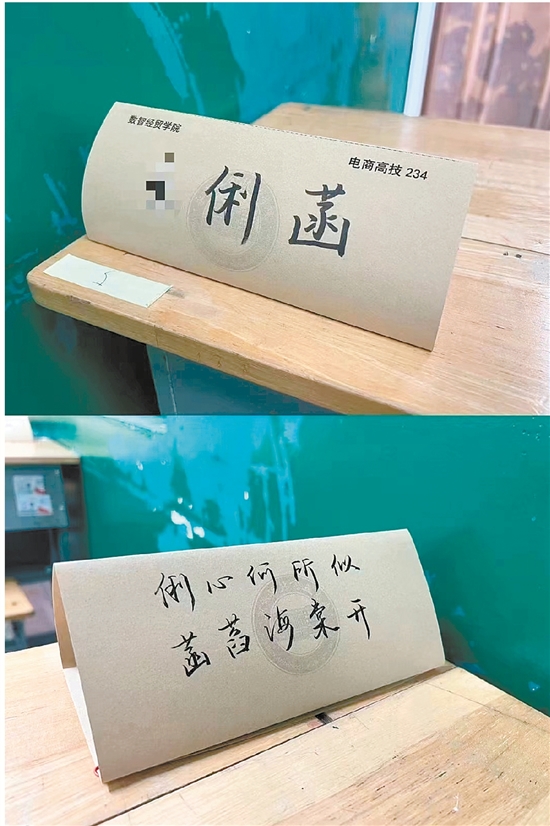 数智经贸学院
电商高技 234
俐菡
5
俐心何所似
菡萏海棠开